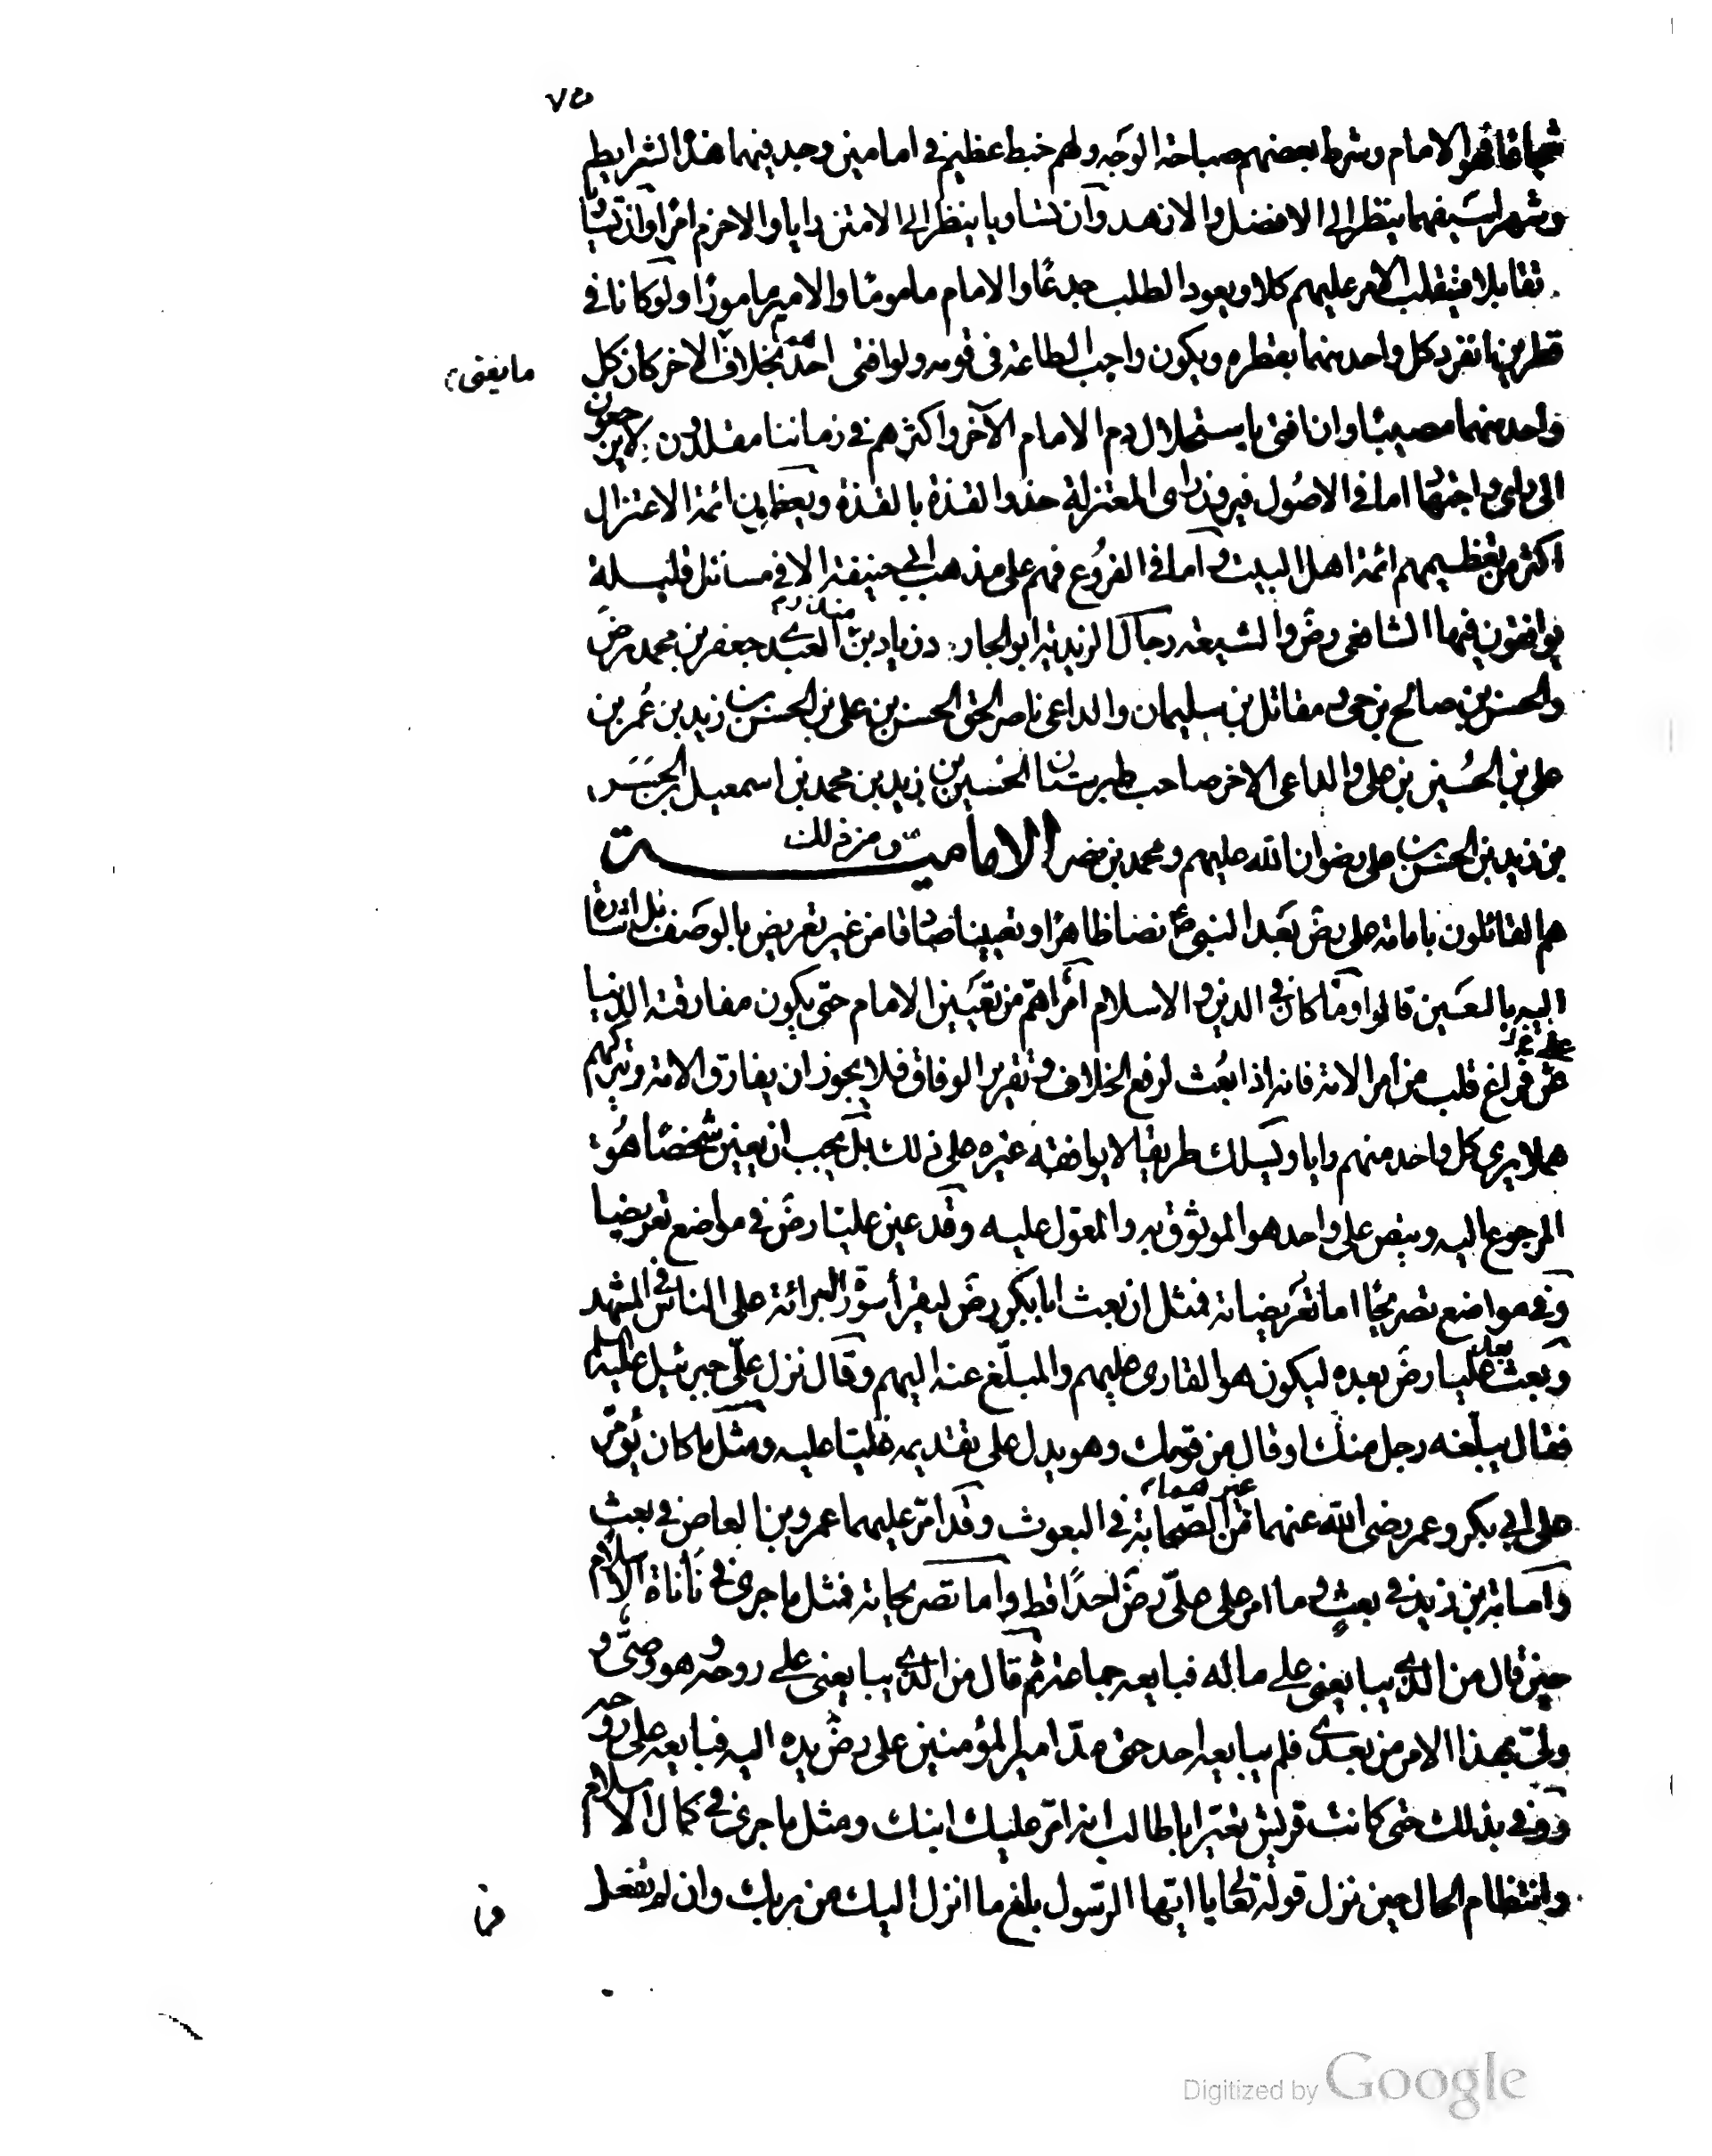 ٧٥
شجاعا فهو الامام وشرط بعضهم صباحة الوجه ولهم خبط عظيم في امامين وجد فيهما هذه الشرايط
وشهرا سيفهما ينظر الى الافضل والازهد وان تساويا ينظر الى الامتن رايا والاحزم امرا وان تساويا
تقابلا فينقلب الامر عليهم كلا ويعود الطلب جدعا والامام ماموما والامير مامورا ولو كانا في
قطرين انفرد كل واحد منهما بقطره ويكون واجب الطاعة في قومه ولو افتى احدهما بخلاف الاخر كان كل
ما يفتى
واحد منهما مصيبا وان افتى باستحلال دم الامام الآخر واكثرهم في زماننا مقلدون لا يرجعون
الى راى واجتهاد اما في الاصول فيرون راى المعتزلة حذو القذة بالقذة ويعظمون ائمة الاعتزال
اكثر من تعظيمهم ائمة اهل البيت واما في الفروع فهم على مذهب ابي حنيفة الا في مسائل قليلة
يوافقون فيها الشافعى رض والشيعة رجال الزيدية ابو الجارود زياد بن المنذر العبدى جعفر بن محمد رض
والحسن بن صالح بن حى ومقاتل بن سليمان والداعى ناصر الحق الحسن بن على بن الحسن بن زيد بن عمر بن
على بن الحسين بن على والداعى الاخر صاحب طبرستان الحسين بن زيد بن محمد بن اسمعيل بن الحسن
بن زيد بن الحسن بن على رضوان الله عليهم ومحمد بن نصر ومن ذلك الامامية
هم القائلون بامامة على رض بعد النبى ع نصا ظاهرا وتعيينا صادقا من غير تعريض بالوصف بل اشارة
اليه بالعين قالوا وما كان في الدين والاسلام امر اهم من تعيين الامام حتى يكون مفارقته الدنيا
على فراغ قلب من امر الامة فانه اذا بعث لرفع الخلاف وتقرير الوفاق فلا يجوز ان يفارق الامة ويتركهم
هملا يرى كل واحد منهم رايا ويسلك طريقا لا يوافقه غيره على ذلك بل يجب ان يعين شخصا هو
المرجوع اليه وينص على واحد هو الموثوق به والمعول عليه وقد عين عليا رض في مواضع تعريضا
وفي مواضع تصريحا اما تعريضاته فمثل ان بعث ابا بكر رض ليقرأ سورة البرائة على الناس في المشهد
وبعث بعده عليا رض بعده ليكون هو القارى عليهم والمبلغ عنه اليهم وقال نزل علىّ جبرئيل عليه السلم
فقال يبلغه رجل منك او قال من قومك وهو يدل على تقديمه عليا عليه ومثل ما كان يؤمر
على ابي بكر وعمر رضى الله عنهما غيرهما من الصحابة في البعوث وقد امر عليهما عمرو بن العاص في بعث
واسامة بن زيد في بعث وما امر على علىّ رض احدا قط واما تصريحاته فمثل ما جرى في نأنأة الاسلام
حين قال من الذى يبايعنى على ماله فبايعه جماعة ثم قال من الذى يبايعنى على روحه وهو وصيى و
ولى هذا الامر من بعدى فلم يبايعه احد حتى مد امير المؤمنين على رض يده اليه فبايعه على روحه
ووفى بذلك حتى كانت قريش تعير ابا طالب انه امر عليك ابنك ومثل ما جرى في كمال الاسلام
وانتظام الحال حين نزل قوله تعالى يا ايها الرسول بلغ ما انزل اليك من ربك وان لم تفعل